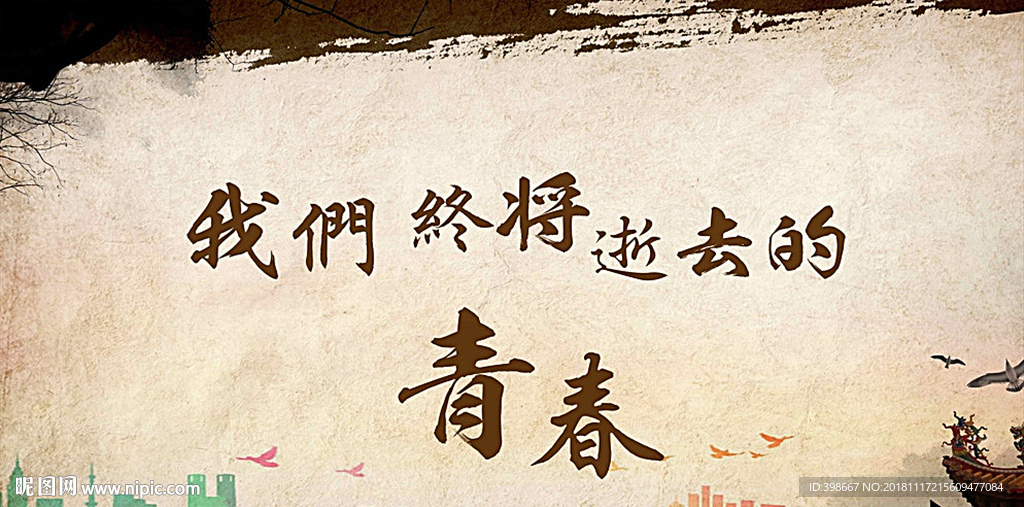 我們終将逝去的
青春
昵图网 www.nipic.com
ID:398667 NO:20181117215609477084